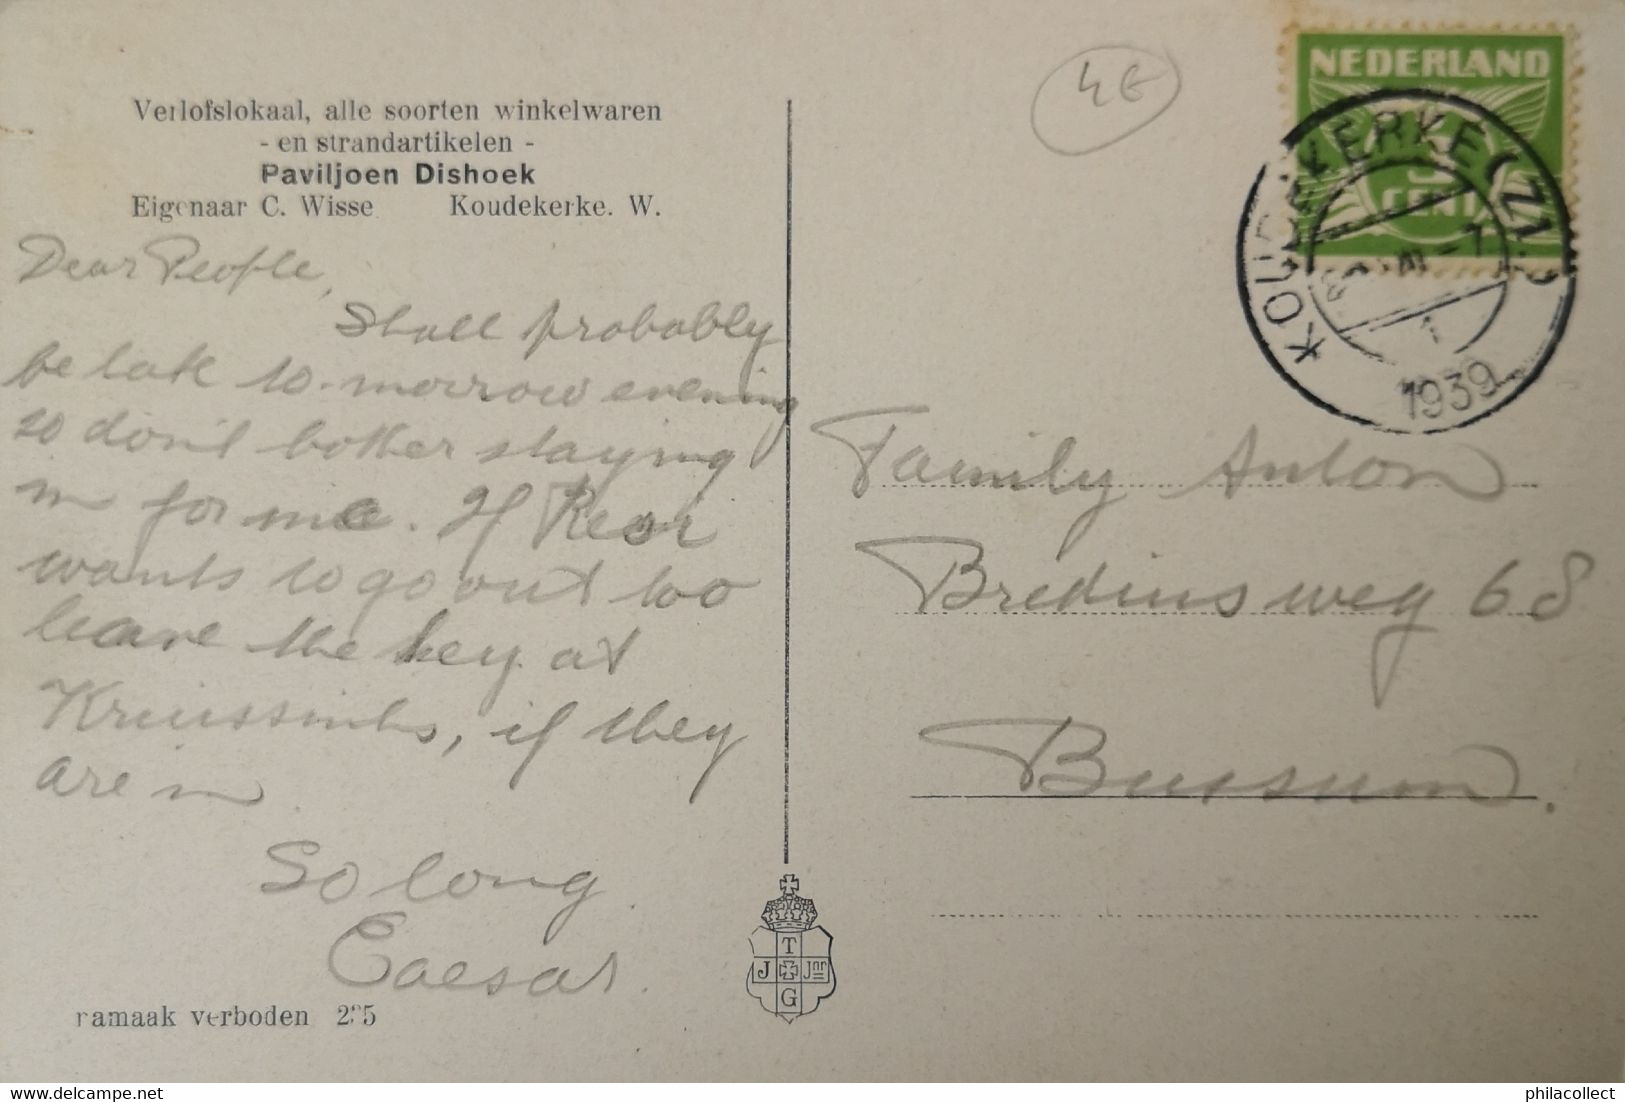 Verlofslokaal, alle soorten winkelwaren
- en strandartikelen -
Paviljoen Dishoek
Eigenaar C. Wisse Koudekerke. W.
Dear People,
Shall probably
be late to-morrow evening
so don't bother staying
in for me. If
wants to go out too
leave the key at
if they
are in
So long
Caesar.
ramaak verboden 235
4E
NEDERLAND
CENT
KOUDEKERKE (ZL.)
1
1939
Family Anton
Brediusweg 68
Bussum.
T
J Jnr
G
philacollect
www.delcampe.net